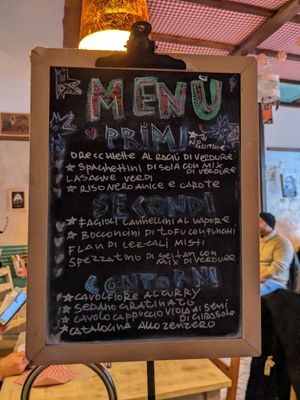 MENU
PRIMI
ORECCHIETTE AL RAGÙ DI VERDURE
★ SPAGHETTINI DI SOIA CON MIX DI VERDURE
LASAGNE VERDI
★ RISO NERO NOCI E CAROTE
SECONDI
★ FAGIOLI CANNELLINI AL VAPORE
★ BOCCONCINI DI TOFU CON FUNGHI
FLAN DI CEREALI MISTI
SPEZZATINO DI SEITAN CON MIX DI VERDURE
CONTORNI
★ CAVOLFIORE AL CURRY
★ SEDANO GRATINATO
★ CAVOLO CAPPUCCIO VIOLA AI SEMI DI GIRASOLE
★ CATALOGNA ALLO ZENZERO